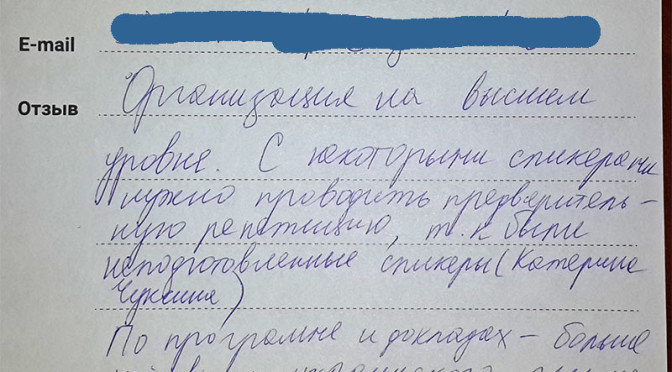 E-mail
Отзыв
Организация на высшем
уровне. С некоторыми спикерами
нужно проводить предваритель-
ную репетицию, т.к были
неподготовленные спикеры (Катерина
По программе и докладах - больше